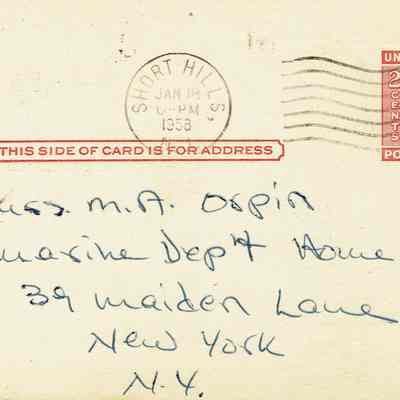 SHORT HILLS,
JAN 18
6-PM
1958
N.J.
UN
2
CENTS
PO
THIS SIDE OF CARD IS FOR ADDRESS
iss. M.A. Ospin
marine Dep't Home
39 maiden Lane
New York
N.Y.